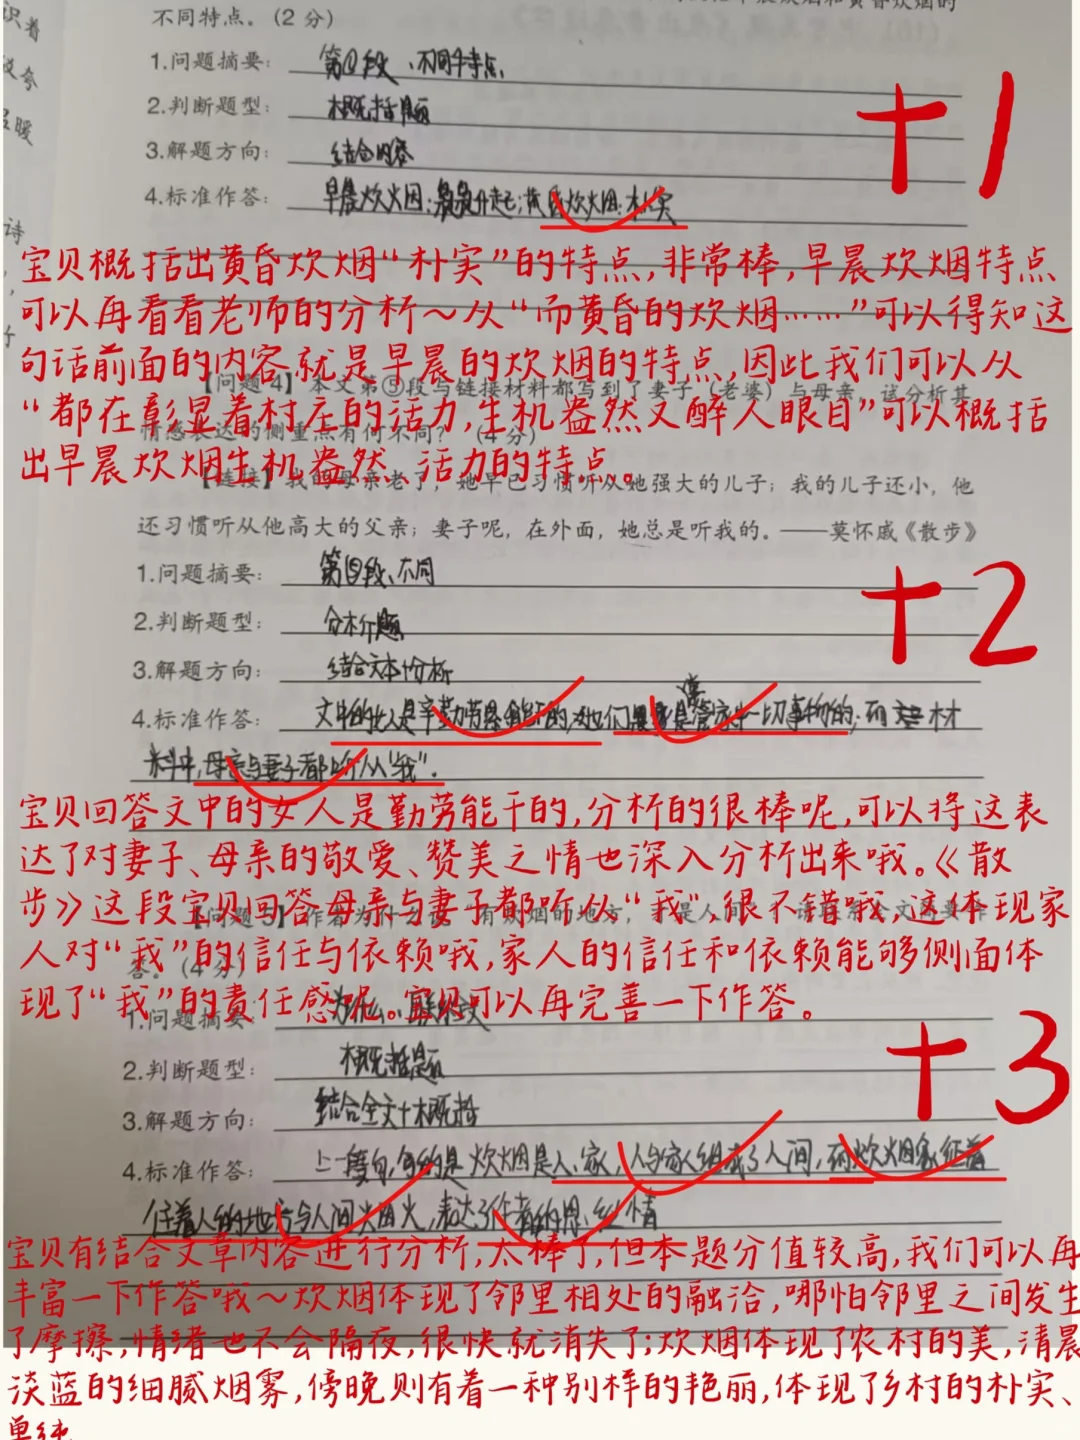 识着
暖
诗
不同特点。(2分)
1.问题摘要： 第①段、不同特点
2.判断题型： 概括题
3.解题方向： 结合内容
4.标准作答： 早晨炊烟：袅袅升起；黄昏炊烟：朴实
+1
宝贝概括出黄昏炊烟“朴实”的特点，非常棒，早晨炊烟特点
可以再看看老师的分析～从“而黄昏的炊烟……”可以得知这
句话前面的内容就是早晨的炊烟的特点，因此我们可以从
【问题4】本文第⑤段与链接材料都写到了妻子（老婆）与母亲，试分析其
“都在彰显着村庄的活力，生机盎然又醉人眼目”可以概括
情感表达的侧重点有何不同？(4分)
出早晨炊烟生机盎然、活力的特点。
【链接】我的母亲老了，她早已习惯听从她强大的儿子；我的儿子还小，他
还习惯听从他高大的父亲；妻子呢，在外面，她总是听我的。——莫怀戚《散步》
1.问题摘要： 第⑤段、不同
2.判断题型： 分析题
3.解题方向： 结合文本分析
4.标准作答： 文中的女人是辛勤劳累能干的，她们是管家中一切事物的；而材
料中，母亲与妻子都听从“我”。
+2
宝贝回答文中的女人是勤劳能干的，分析的很棒呢，可以将这表
达了对妻子、母亲的敬爱、赞美之情也深入分析出来哦。《散
步》这段宝贝回答母亲与妻子都听从“我”很不错哦，这体现家
【问题5】作者为什么说“有炊烟的地方，才是人间”？请联系全文简要作
人对“我”的信任与依赖哦，家人的信任和依赖能够侧面体
答。(4分)
现了“我”的责任感呢。宝贝可以再完善一下作答。
1.问题摘要： 为什么、联系全文
2.判断题型： 概括题
3.解题方向： 结合全文+概括
4.标准作答： 上一段句，写的是炊烟是人、家，人与家组成了人间，而炊烟象征着
住着人的地方与人间烟火，表达了作者的思乡之情
+3
宝贝有结合文章内容进行分析，太棒了，但本题分值较高，我们可以再
丰富一下作答哦～炊烟体现了邻里相处的融洽，哪怕邻里之间发生
了摩擦，情绪也不会隔夜，很快就消失了；炊烟体现了农村的美，清晨
淡蓝的细腻烟雾，傍晚则有着一种别样的艳丽，体现了乡村的朴实、
单纯